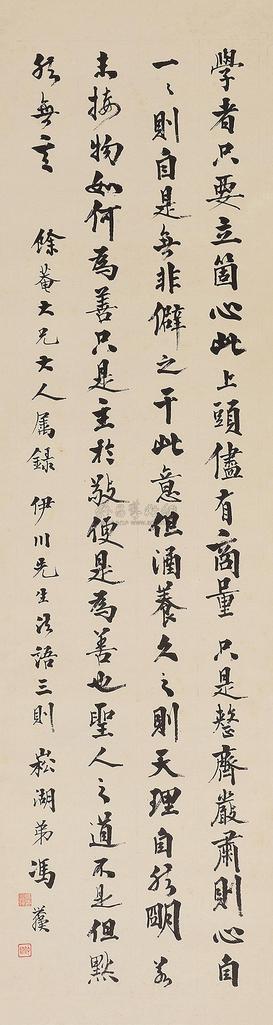 學者只要立箇心此上頭儘有商量 只是整齊嚴肅則心自
一々則自是無非僻之干此意但涵養久之則天理自然明 若
未接物如何為善只是主於敬便是為善也聖人之道不是但默
然無言 餘菴大兄大人属錄 伊川先生法語三則 崧湖弟馮